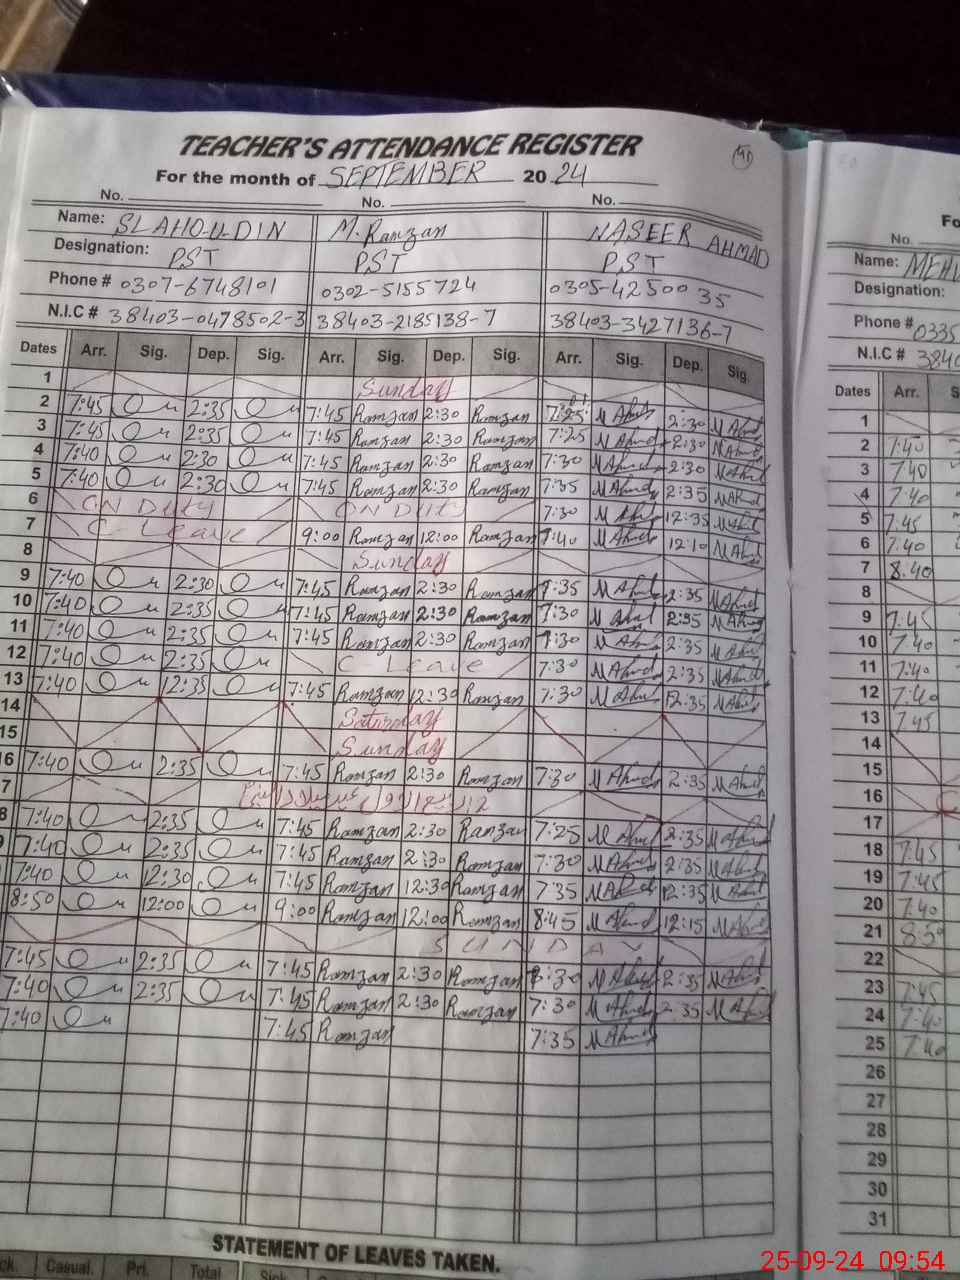 TEACHER'S ATTENDANCE REGISTER
For the month of SEPTEMBER 2024
No. No. No.
Name: SLAHOUDIN M. Ramzan NASEER AHMAD
Designation: PST PST PST
Phone # 0307-6748101 0302-5155724 0305-4250035
N.I.C # 38403-0478502-3 38403-2185138-7 38403-3427136-7
Dates Arr. Sig. Dep. Sig. Arr. Sig. Dep. Sig. Arr. Sig. Dep. Sig.
1 Sunday
2 7:45 2:35 7:45 Ramzan 2:30 Ramzan 7:25 M Ahmd 2:30 M Ahmd
3 7:45 2:35 7:45 Ramzan 2:30 Ramzan 7:25 M Ahmd 2:30 M Ahmd
4 7:40 2:30 7:45 Ramzan 2:30 Ramzan 7:30 M Ahmd 2:30 M Ahmd
5 7:40 2:30 7:45 Ramzan 2:30 Ramzan 7:35 M Ahmd 2:35 M Ahmd
6 ON Duty ON Duty 7:30 M Ahmd 12:35 M Ahmd
7 C-Leave 9:00 Ramzan 12:00 Ramzan 7:40 M Ahmd 12:10 M Ahmd
8 Sunday
9 7:40 2:30 7:45 Ramzan 2:30 Ramzan 7:35 M Ahmd 2:35 M Ahmd
10 7:40 2:35 7:45 Ramzan 2:30 Ramzan 7:30 M Ahmd 2:35 M Ahmd
11 7:40 2:35 7:45 Ramzan 2:30 Ramzan 7:30 M Ahmd 2:35 M Ahmd
12 7:40 2:35 C-Leave 7:30 M Ahmd 2:35 M Ahmd
13 7:40 12:35 7:45 Ramzan 12:30 Ramzan 7:30 M Ahmd 12:35 M Ahmd
14 Saturday
15 Sunday
16 7:40 2:35 7:45 Ramzan 2:30 Ramzan 7:30 M Ahmd 2:35 M Ahmd
7
8 7:40 2:35 7:45 Ramzan 2:30 Ramzan 7:25 M Ahmd 2:35 M Ahmd
9 7:40 2:35 7:45 Ramzan 2:30 Ramzan 7:30 M Ahmd 2:35 M Ahmd
7:40 12:30 7:45 Ramzan 12:30 Ramzan 7:35 M Ahmd 12:35 M Ahmd
8:50 12:00 9:00 Ramzan 12:00 Ramzan 8:45 M Ahmd 12:15 M Ahmd
SUNDAY
7:45 2:35 7:45 Ramzan 2:30 Ramzan 7:30 M Ahmd 2:35 M Ahmd
7:40 2:35 7:45 Ramzan 2:30 Ramzan 7:30 M Ahmd 2:35 M Ahmd
7:40 7:45 Ramzan 7:35 M Ahmd
STATEMENT OF LEAVES TAKEN.
Casual. Pri. Total Sick
No.
Name:
Designation:
Phone # 0335
N.I.C # 3840
Dates Arr.
1
2 7:40
3 7:40
4 7:40
5 7:45
6 7:40
7 8:40
8
9 7:45
10 7:40
11 7:40
12 7:40
13 7:45
14
15
16
17
18 7:45
19 7:45
20 7:40
21 8:50
22
23 7:45
24 7:40
25 7:40
26
27
28
29
30
31
25-09-24 09:54